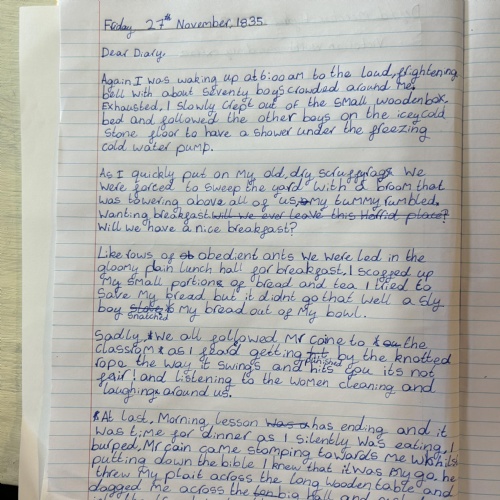 Friday 27th November, 1835.
Dear Diary,
Again I was waking up at 6:00 am to the loud, frightening
bell with about seventy boys crowded around me.
Exhausted, I slowly crept out of the small wooden box
bed and followed the other boys on the icey cold
stone floor to have a shower under the freezing
cold water pump.
As I quickly put on my old, dry scruffy rags we
were forced to sweep the yard with a broom that
was towering above all of us, my tummy rumbled.
Wanting breakfast will we ever leave this Horrid place?
Will we have a nice breakfast?
Like rows of obedient ants we were led in the
gloomy plain lunch hall for breakfast. I scoffed up
my small portions of bread and tea I tried to
save my bread but it didnt go that well a sly
boy snatched my bread out of my bowl.
Sadly, we all followed Mr Caine to the
classrom as I feard getting punished by the knotted
rope the way it swings and hits you its not
fair! and listening to the women cleaning and
laughing around us.
At last, Morning lesson has ending and it
was time for dinner as I silently was eating, I
burped, Mr Cain came stomping towards me whilst
putting down the bible I knew that it was my go. he
threw my plait across the long wooden table and
dagged me across the big hall and